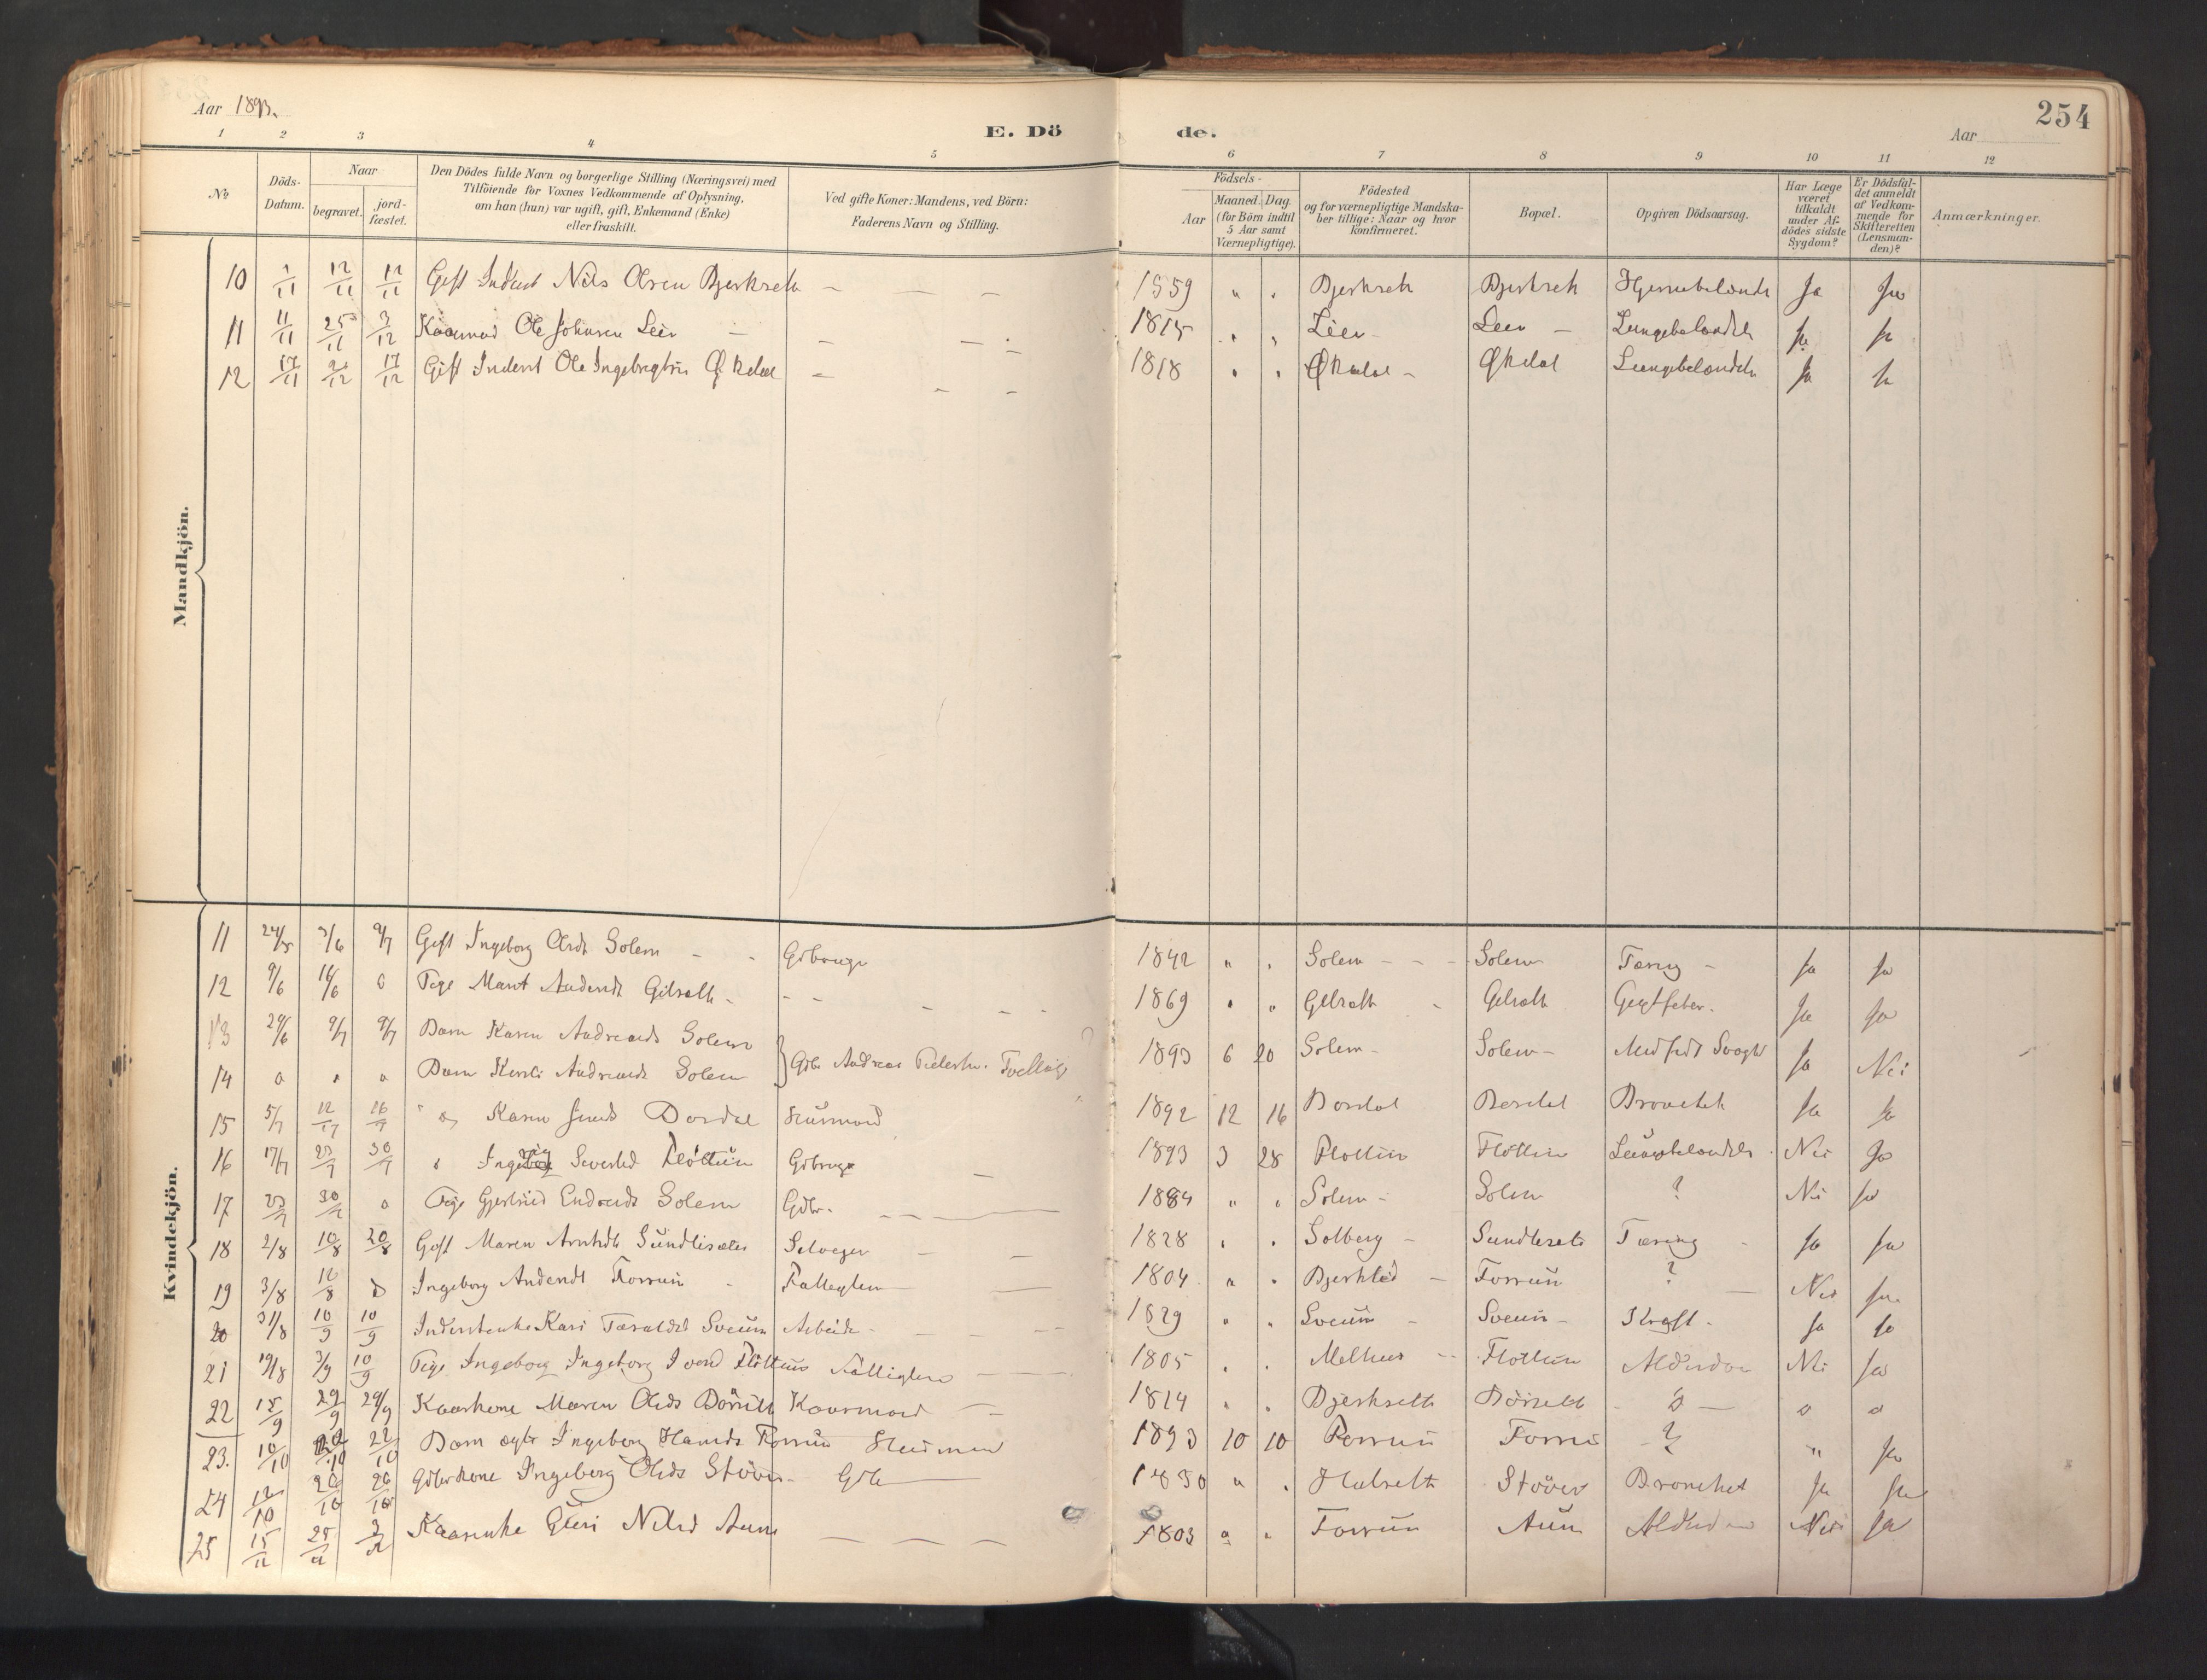 Aar 1893.
E. Dö
de.
254
Aar
1 2 3 4 5 6 7 8 9 10 11 12
№
Döds-Datum.
Naar
begravet.
jord-fæstet.
Den Dödes fulde Navn og borgerlige Stilling (Næringsvei) med
Tilföiende for Voxnes Vedkommende af Oplysning,
om han (hun) var ugift, gift, Enkemand (Enke)
eller fraskilt.
Ved gifte Koner: Mandens, ved Börn:
Faderens Navn og Stilling.
Födsels-
Aar
Maaned. Dag.
(for Börn indtil
5 Aar samt
Værnepligtige).
Födested
og for værnepligtige Mandska-
ber tillige: Naar og hvor
konfirmeret.
Bopæl.
Opgiven Dödsaarsag.
Har Læge
været
tilkaldt
under Af-
dödes sidste
Sygdom?
Er Dödsfal-
det anmeldt
af Vedkom-
mende for
Skifteretten
(Lensman-
den)?
Anmærkninger.
Mandkjön.
10 1/11 12/11 12/11 Gift Inderst Nils Olsen Bjerkseth — — — 1859 " " Bjerkseth Bjerkseth Hjernebetændelse Ja Ja
11 11/11 25/11 3/12 Kaarmand Ole Johnsen Leer — — — 1815 " " Leer - Leer — Lungebetændelse Ja Ja
12 17/11 17/12 Gift Inderst Ole Ingebrigtsen Økdal — — — 1818 " " Økdal - Økdal Lungebetændelse Ja Ja
Kvindekjön.
11 24/5 3/6 9/7 Gift Ingeborg Olsdt Solem - - Gdbruger 1842 " " Solem - - - Solem Tæring - Ja Ja
12 9/6 16/6 Pige Marit Andersdt Gilseth - - - 1869 " " Gilseth - Gilseth Gigtfeber. Ja Ja
13 29/6 9/7 9/7 Barn Karen Andreasdt Solem
14 Barn Kirsti Andreasdt Solem } Gdbr Andreas Tvilling 1893 6 20 Solem - Solem - Medfödt Svaghed Ja Nei
15 5/7 12/7 16/7 Karen Jensdt Bordal Husmand 1892 12 16 Bordal Bordal Bronchit Ja Ja
16 17/7 23/7 30/7 " Ingeborg Sivertsd Flöttum Gdbruger — 1893 3 28 Flottum Flottum Lungebetændelse Nei Ja
17 23/7 30/7 Pige Gjertrud Endresdt Solem Gdbr. — 1884 " " Solem - Solem ? Nei Ja
18 2/8 10/8 20/8 Gift Maren Arntsdt Sundliseter Selveger — — 1828 " " Solberg - Sundleset Tæring - Ja Ja
19 3/8 12/8 Ingeborg Andersdt Forrun - Fattiglem — 1804 " " Bjerkled — Forrun ? — Nei Ja
20 31/8 10/9 10/9 Inderstenke Kari Taraldsdt Sveum Arbeider - — 1829 " " Sveum - Sveum - Kræft - Ja Ja
21 19/8 3/9 10/9 Pige Ingeborg Ingeborg Iversd Flöttum Fattiglem — — 1805 " " Melhus - - Flottum Alderdom Nei Ja
22 15/9 29/9 29/9 Kaarkone Maren Olsds Börseth Kaarmand — 1814 " " Bjerkseth Börseth —
23. 10/10 22/10 22/10 Barn ægte Ingeborg Hansds Forrun Husmand 1893 10 10 Forrun Forrun ? " Ja
24 12/10 26/10 26/10 Gdbrkone Ingeborg Olsds Stöver - Gdbr — 1830 " " Halseth Stöver Bronchit Ja Ja
25 15/11 25/11 Kaarenke Guri Nilsd Aune — — — 1803 " " Forrun Aune Alderdom Nei Ja